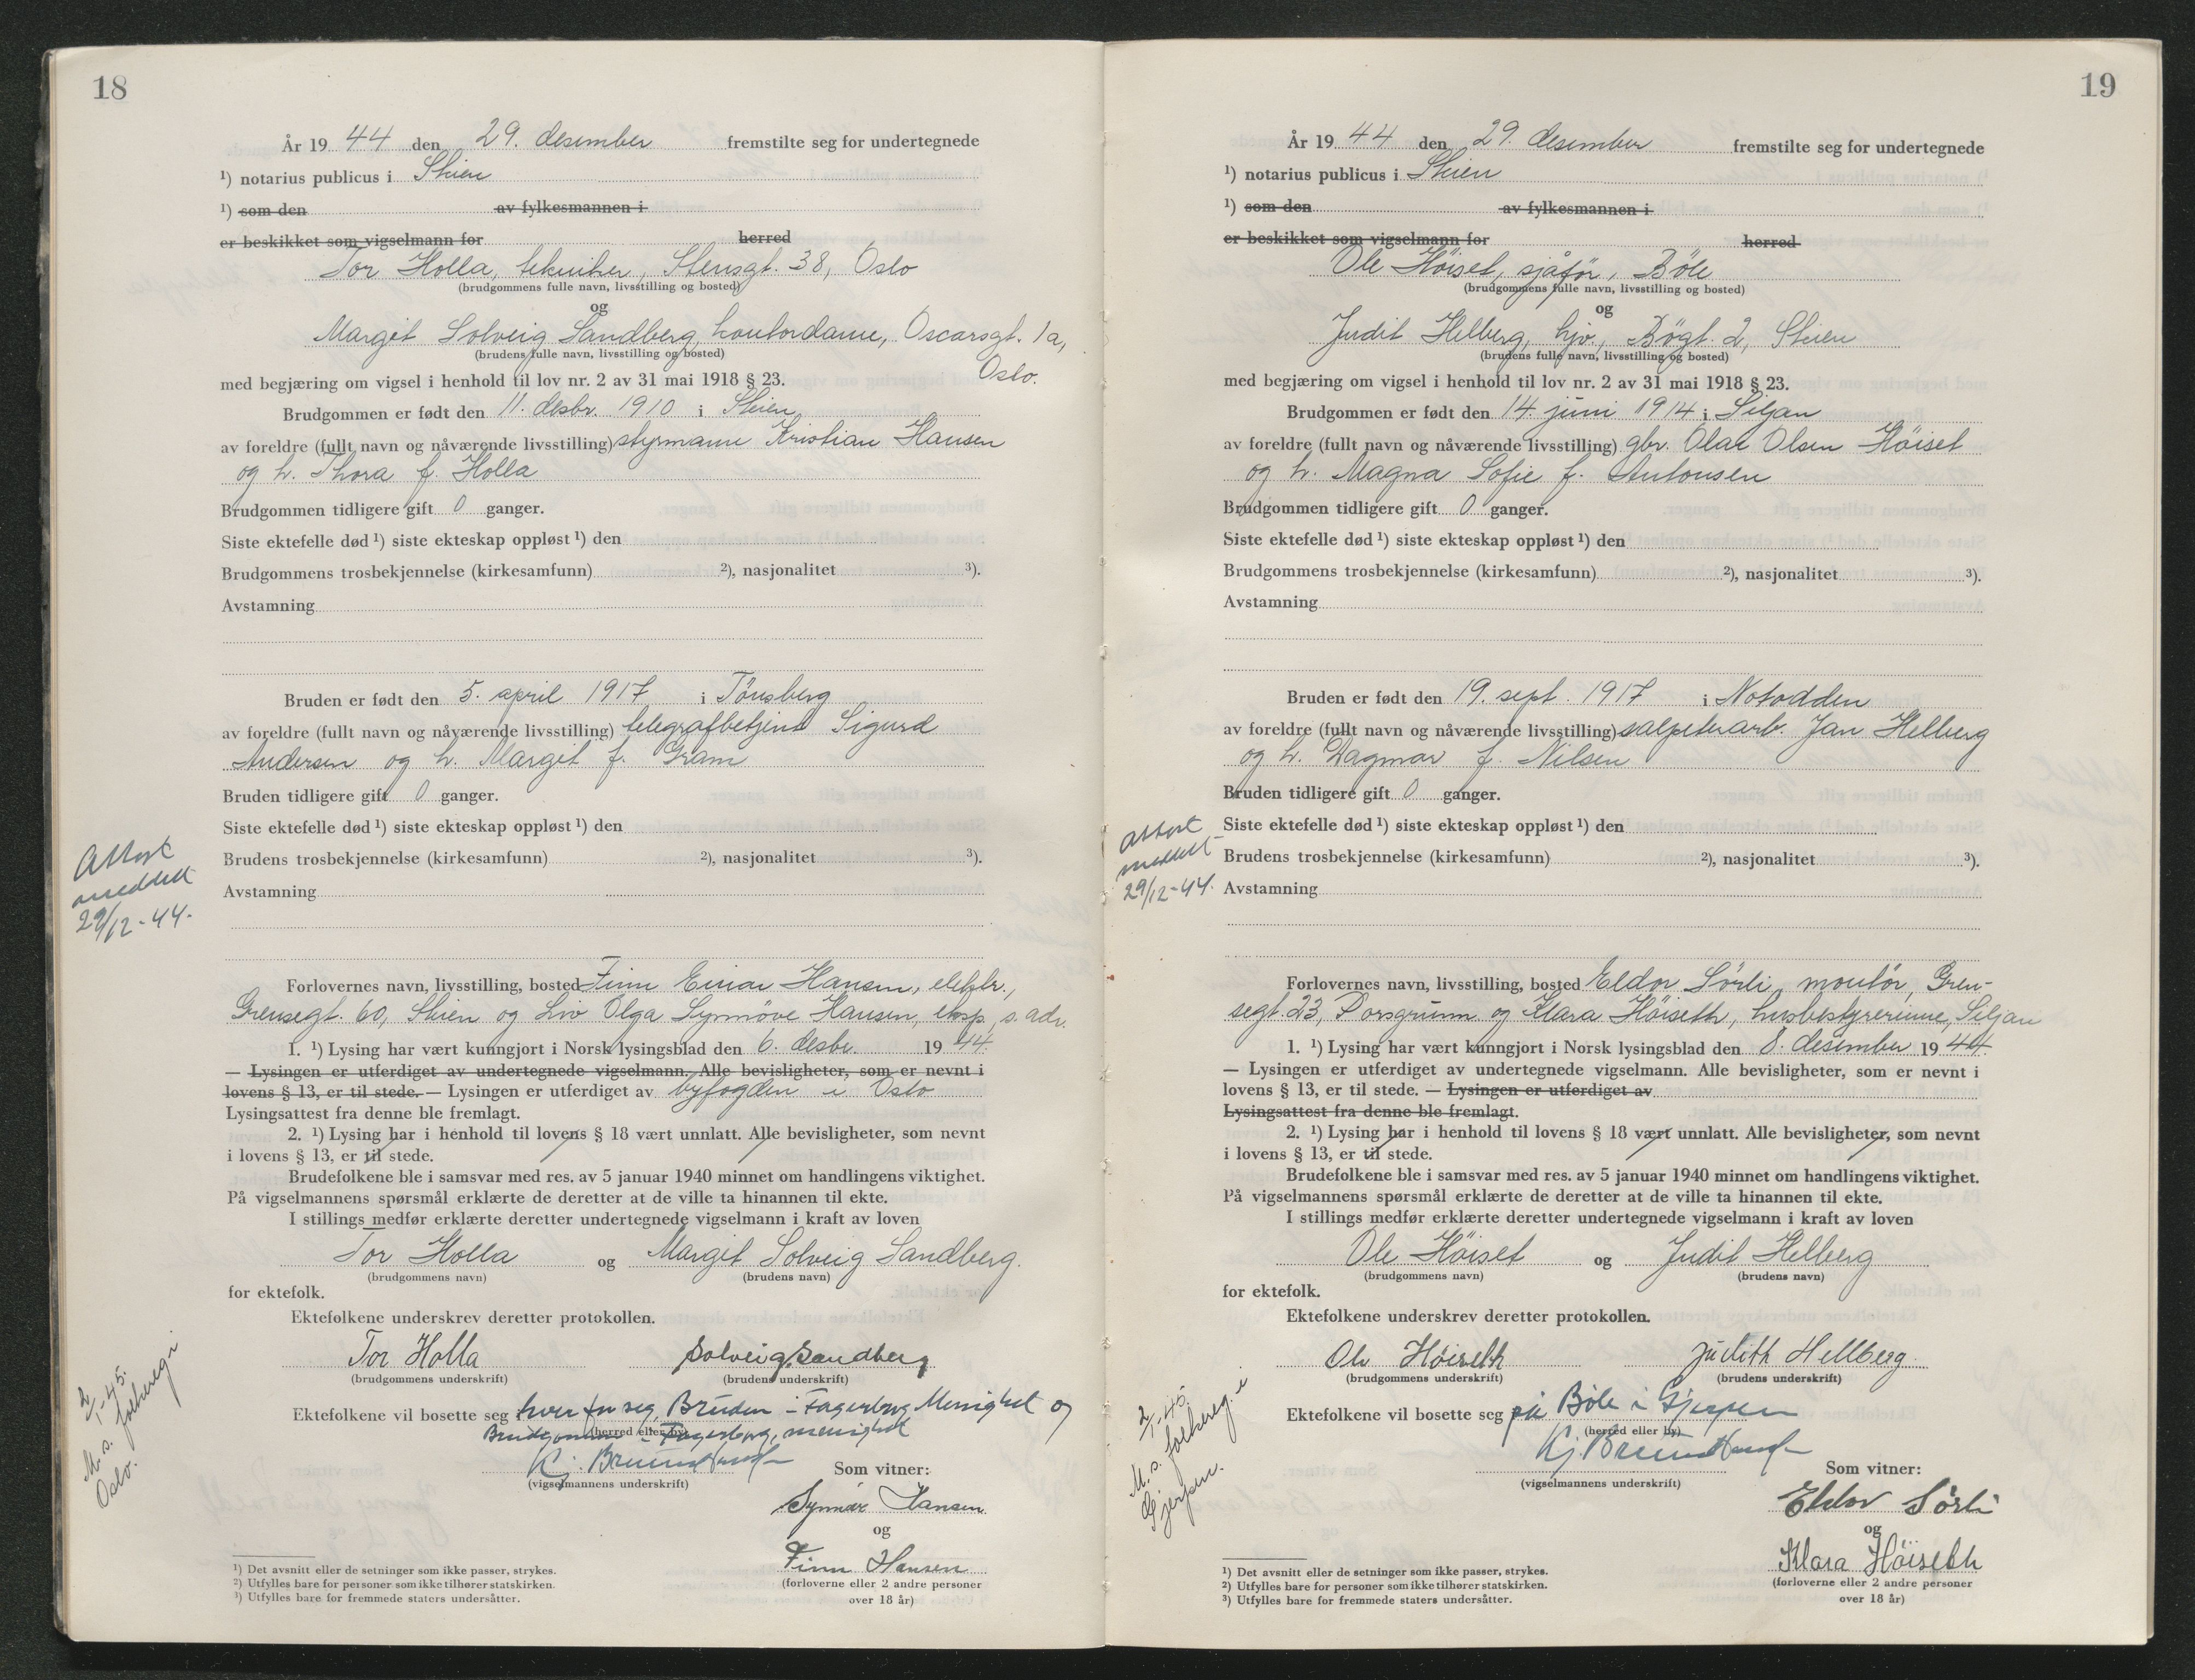 18
År 19 44 den 29. desember fremstilte seg for undertegnede
¹) notarius publicus i Skien
¹) som den av fylkesmannen i
er beskikket som vigselmann for herred
Tor Holla, tekniker, Stensgt. 38, Oslo
(brudgommens fulle navn, livsstilling og bosted)
og
Margit Solveig Sandberg, kontordame, Oscarsgt. 1a,
(brudens fulle navn, livsstilling og bosted)
Oslo.
med begjæring om vigsel i henhold til lov nr. 2 av 31 mai 1918 § 23.
Brudgommen er født den 11. desbr. 1910 i Skien
av foreldre (fullt navn og nåværende livsstilling) styrmann Kristian Hansen
og h. Thora f. Holla
Brudgommen tidligere gift 0 ganger.
Siste ektefelle død ¹) siste ekteskap oppløst ¹) den
Brudgommens trosbekjennelse (kirkesamfunn) ²), nasjonalitet ³).
Avstamning
Bruden er født den 5. april 1917 i Tönsberg
av foreldre (fullt navn og nåværende livsstilling) telegrafbetjent Sigurd
Andersen og h. Margit f. Gram
Bruden tidligere gift 0 ganger.
Siste ektefelle død ¹) siste ekteskap oppløst ¹) den
Brudens trosbekjennelse (kirkesamfunn) ²), nasjonalitet ³).
Avstamning
Attest
meddelt
29/12-44.
Forlovernes navn, livsstilling, bosted Finn Einar Hansen, elektr.,
Grensegt. 60, Skien og Liv Olga Synnöve Hansen, eksp., s. adr.
1. ¹) Lysing har vært kunngjort i Norsk lysingsblad den 6. desbr. 19 44.
— Lysingen er utferdiget av undertegnede vigselmann. Alle bevisligheter, som er nevnt i
lovens § 13, er til stede. — Lysingen er utferdiget av byfogden i Oslo
Lysingsattest fra denne ble fremlagt.
2. ¹) Lysing har i henhold til lovens § 18 vært unnlatt. Alle bevisligheter, som nevnt
i lovens § 13, er til stede.
Brudefolkene ble i samsvar med res. av 5 januar 1940 minnet om handlingens viktighet.
På vigselmannens spørsmål erklærte de deretter at de ville ta hinannen til ekte.
I stillings medfør erklærte deretter undertegnede vigselmann i kraft av loven
Tor Holla og Margit Solveig Sandberg.
(brudgommens navn) (brudens navn)
for ektefolk.
Ektefolkene underskrev deretter protokollen.
Tor Holla Solveig Sandberg
(brudgommens underskrift) (brudens underskrift)
Ektefolkene vil bosette seg hver for seg, Bruden i Fagerborg Menighet og
Brudgommen i Fagerborg, menighet
(herred eller by)
2/1-45.
M. s. folkereg. i
Oslo.
(vigselmannens underskrift)
Som vitner:
Synnöv Hansen
og
Finn Hansen
(forloverne eller 2 andre personer
over 18 år)
¹) Det avsnitt eller de setninger som ikke passer, strykes.
²) Utfylles bare for personer som ikke tilhører statskirken.
³) Utfylles bare for fremmede staters undersåtter.
19
År 19 44 den 29. desember fremstilte seg for undertegnede
¹) notarius publicus i Skien
¹) som den av fylkesmannen i
er beskikket som vigselmann for herred
Ole Höiset, sjåför, Böle
(brudgommens fulle navn, livsstilling og bosted)
og
Judit Helberg, hjv., Bögt. 2, Skien
(brudens fulle navn, livsstilling og bosted)
med begjæring om vigsel i henhold til lov nr. 2 av 31 mai 1918 § 23.
Brudgommen er født den 14. juni 1914 i Siljan
av foreldre (fullt navn og nåværende livsstilling) gbr. Olav Olsen Höiset
og h. Magna Sofie f. Antonsen
Brudgommen tidligere gift 0 ganger.
Siste ektefelle død ¹) siste ekteskap oppløst ¹) den
Brudgommens trosbekjennelse (kirkesamfunn) ²), nasjonalitet ³).
Avstamning
Bruden er født den 19. sept. 1917 i Notodden
av foreldre (fullt navn og nåværende livsstilling) salpeterarb. Jan Helberg
og h. Dagmar f. Nilsen
Bruden tidligere gift 0 ganger.
Siste ektefelle død ¹) siste ekteskap oppløst ¹) den
Brudens trosbekjennelse (kirkesamfunn) ²), nasjonalitet ³).
Avstamning
Attest
meddelt
29/12-44.
Forlovernes navn, livsstilling, bosted Eldor Sörli, montör, Gren-
segt. 23, Porsgrunn og Klara Höiseth, husbestyrerinne, Siljan
1. ¹) Lysing har vært kunngjort i Norsk lysingsblad den 8. desember 19 44.
— Lysingen er utferdiget av undertegnede vigselmann. Alle bevisligheter, som er nevnt i
lovens § 13, er til stede. — Lysingen er utferdiget av
Lysingsattest fra denne ble fremlagt.
2. ¹) Lysing har i henhold til lovens § 18 vært unnlatt. Alle bevisligheter, som nevnt
i lovens § 13, er til stede.
Brudefolkene ble i samsvar med res. av 5 januar 1940 minnet om handlingens viktighet.
På vigselmannens spørsmål erklærte de deretter at de ville ta hinannen til ekte.
I stillings medfør erklærte deretter undertegnede vigselmann i kraft av loven
Ole Höiset og Judit Helberg
(brudgommens navn) (brudens navn)
for ektefolk.
Ektefolkene underskrev deretter protokollen.
Ole Höiseth Judith Hellberg
(brudgommens underskrift) (brudens underskrift)
Ektefolkene vil bosette seg på Böle i Gjerpen
(herred eller by)
2/1-45.
M. s. folkereg. i
Gjerpen.
(vigselmannens underskrift)
Som vitner:
Eldor Sörli
og
Klara Höiseth
(forloverne eller 2 andre personer
over 18 år)
¹) Det avsnitt eller de setninger som ikke passer, strykes.
²) Utfylles bare for personer som ikke tilhører statskirken.
³) Utfylles bare for fremmede staters undersåtter.